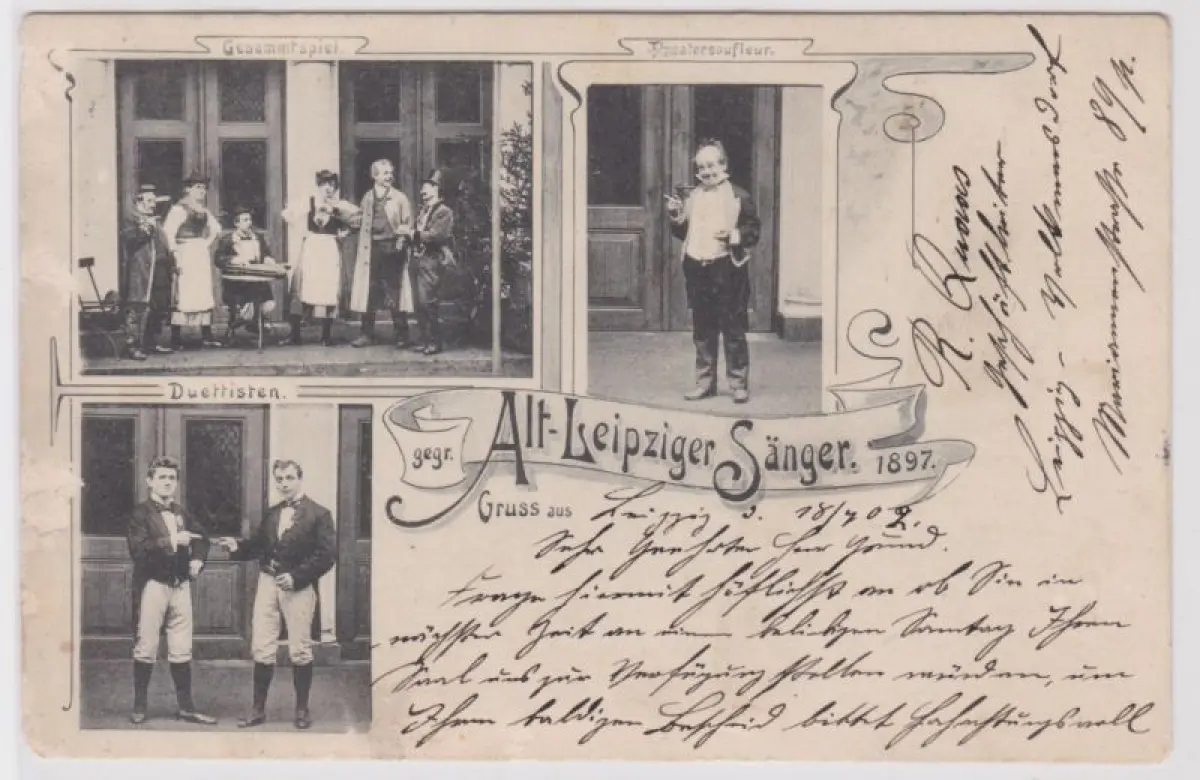 Gesammtspiel.
Theatersoufleur.
Duettisten.
gegr. Alt-Leipziger Sänger. 1897.
Gruss aus Leipzig d. 18/4 02.
Sehr Geehrter Herr Grund.
Frage hiermit höflichst an ob Sie in
nächster Zeit an einem beliebigen Samtag Ihren
Saal uns zur Verfügung stellen würden, um
Ihren baldigen Bescheid bittet Hochachtungsvoll
R.
Geschäftsleiter
Leipzig - Volkmarsdorf
Mariannenstrasse 89